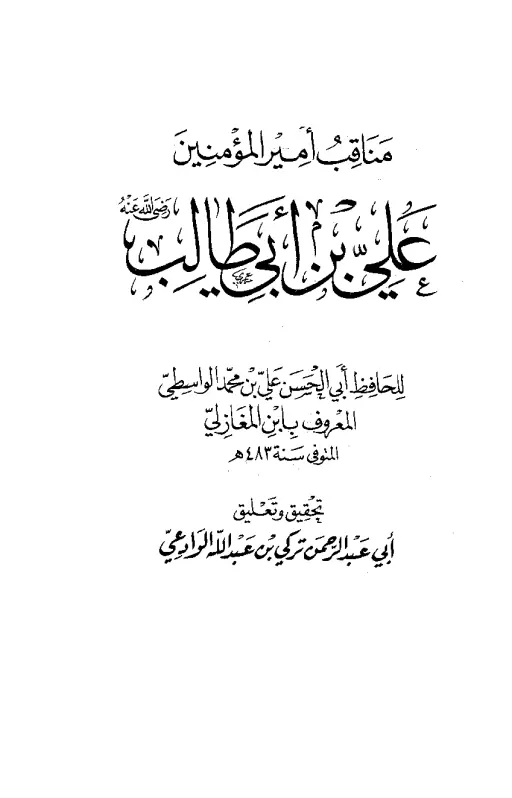 مَنَاقِبُ أَمِيرِ الْمُؤْمِنِينَ
عَلِيِّ بْنِ أَبِي طَالِبٍ رَضِيَ اللَّهُ عَنْهُ
لِلْحَافِظِ أَبِي الْحَسَنِ عَلِيِّ بْنِ مُحَمَّدٍ الْوَاسِطِيِّ
الْمَعْرُوفِ بِابْنِ الْمَغَازِلِيِّ
المتوفى سَنَة ٤٨٣ هـ
تَحْقِيق وَتَعْلِيق
أَبِي عَبْدِ الرَّحْمَنِ تُرْكِي بْنِ عَبْدِ اللَّهِ الْوَادِعِيِّ